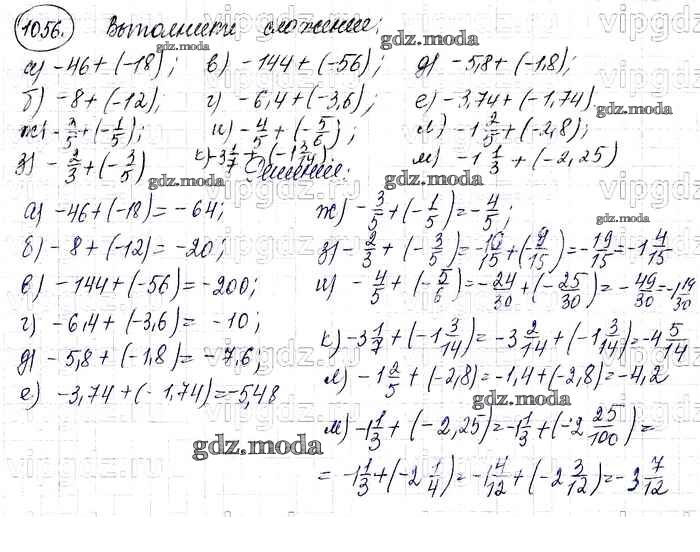 1056. Выполните сложение:
а) -46+(-18); в) -144+(-56); д) -5,8+(-1,8);
б) -8+(-12); г) -6,4+(-3,6); е) -3,74+(-1,74)
ж) -3/5+(-1/5); и) -4/5+(-5/6); л) -1 2/5+(-2,8);
з) -2/3+(-3/5) к) -3 1/7+(-1 3/14) м) -1 1/3+(-2,25)
Решение:
а) -46+(-18)=-64;
б) -8+(-12)=-20;
в) -144+(-56)=-200;
г) -6,4+(-3,6)=-10;
д) -5,8+(-1,8)=-7,6;
е) -3,74+(-1,74)=-5,48
ж) -3/5+(-1/5)=-4/5;
з) -2/3+(-3/5)=-10/15+(-9/15)=-19/15=-1 4/15
и) -4/5+(-5/6)=-24/30+(-25/30)=-49/30=-1 19/30
к) -3 1/7+(-1 3/14)=-3 2/14+(-1 3/14)=-4 5/14
л) -1 2/5+(-2,8)=-1,4+(-2,8)=-4,2
м) -1 1/3+(-2,25)=-1 1/3+(-2 25/100)=
=-1 1/3+(-2 1/4)=-1 4/12+(-2 3/12)=-3 7/12
gdz.moda
gdz.moda
gdz.moda
gdz.moda
gdz.moda
gdz.moda
gdz.moda
gdz.moda
vipgdz.ru